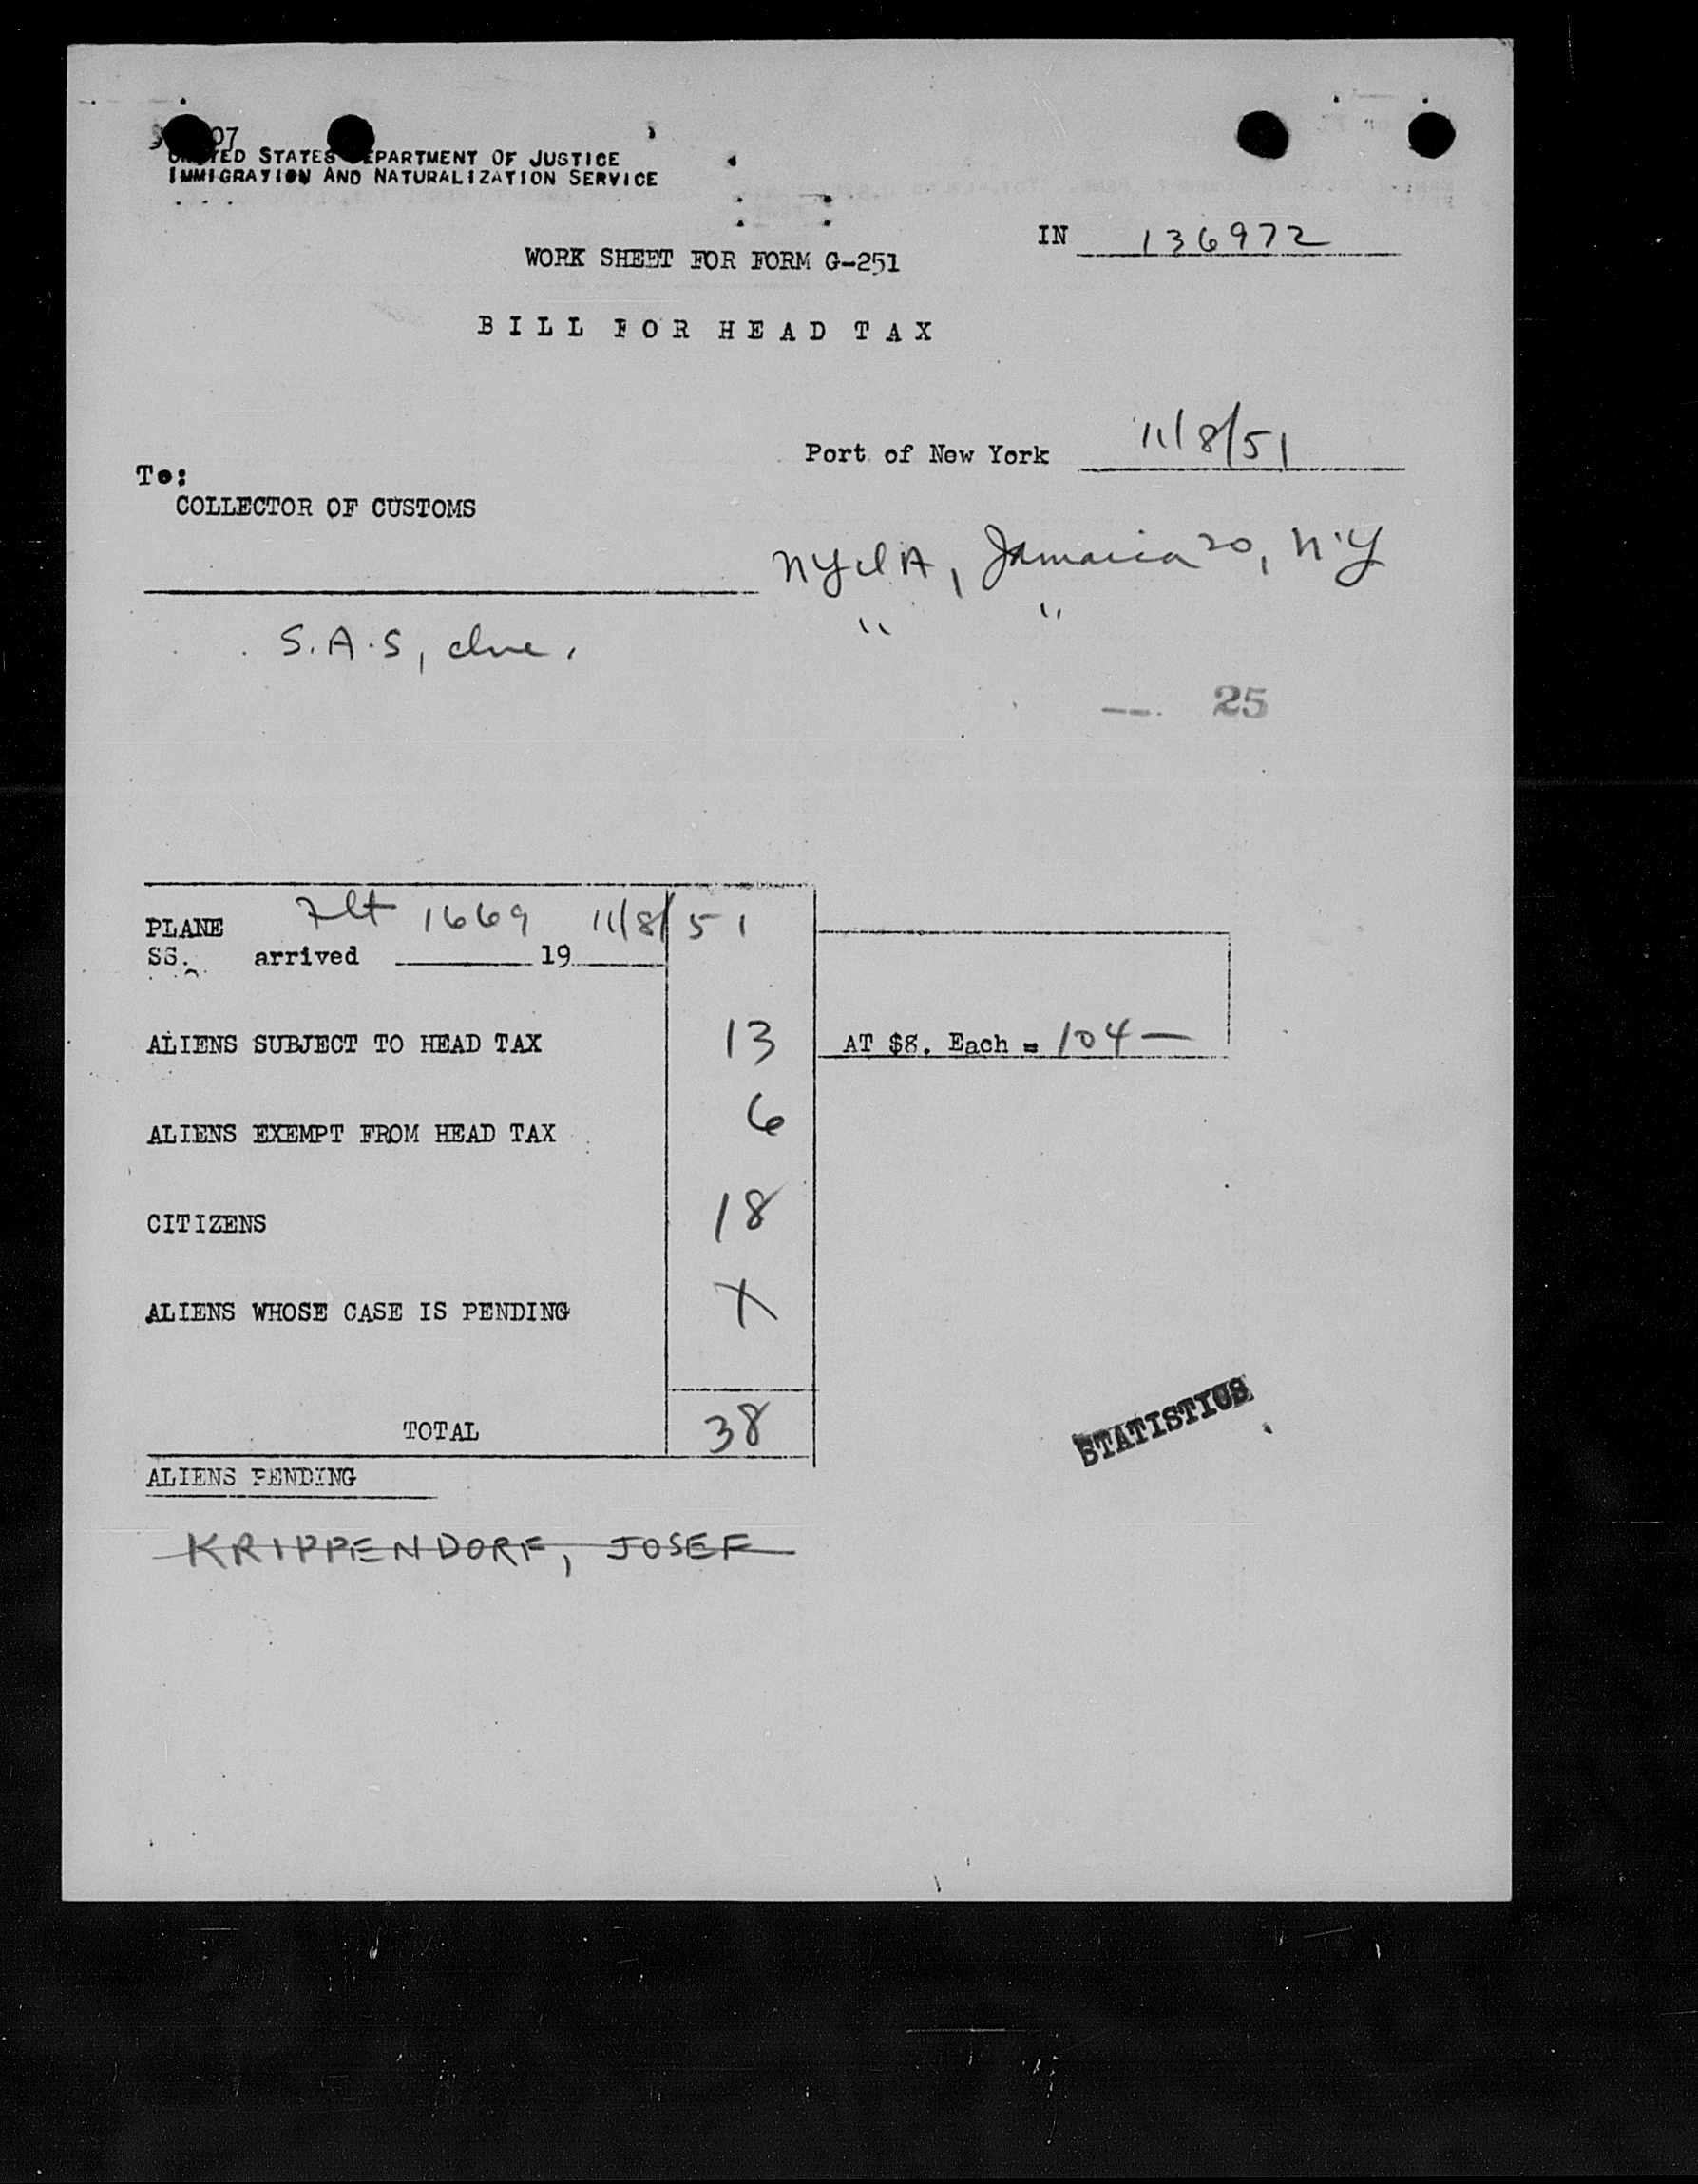 07
UNITED STATES DEPARTMENT OF JUSTICE
IMMIGRATION AND NATURALIZATION SERVICE
IN 136972
WORK SHEET FOR FORM G-251
BILL FOR HEAD TAX
Port of New York 11/8/51
To:
COLLECTOR OF CUSTOMS
NYIA, Jamaica 20, N.Y
" "
S.A.S, Inc.
25
PLANE Flt 1669 11/8/51
SS. arrived 19
ALIENS SUBJECT TO HEAD TAX 13 AT $8. Each = 104 —
ALIENS EXEMPT FROM HEAD TAX 6
CITIZENS 18
ALIENS WHOSE CASE IS PENDING X
TOTAL 38
STATISTICS
ALIENS PENDING
KRIPPENDORF, JOSEF